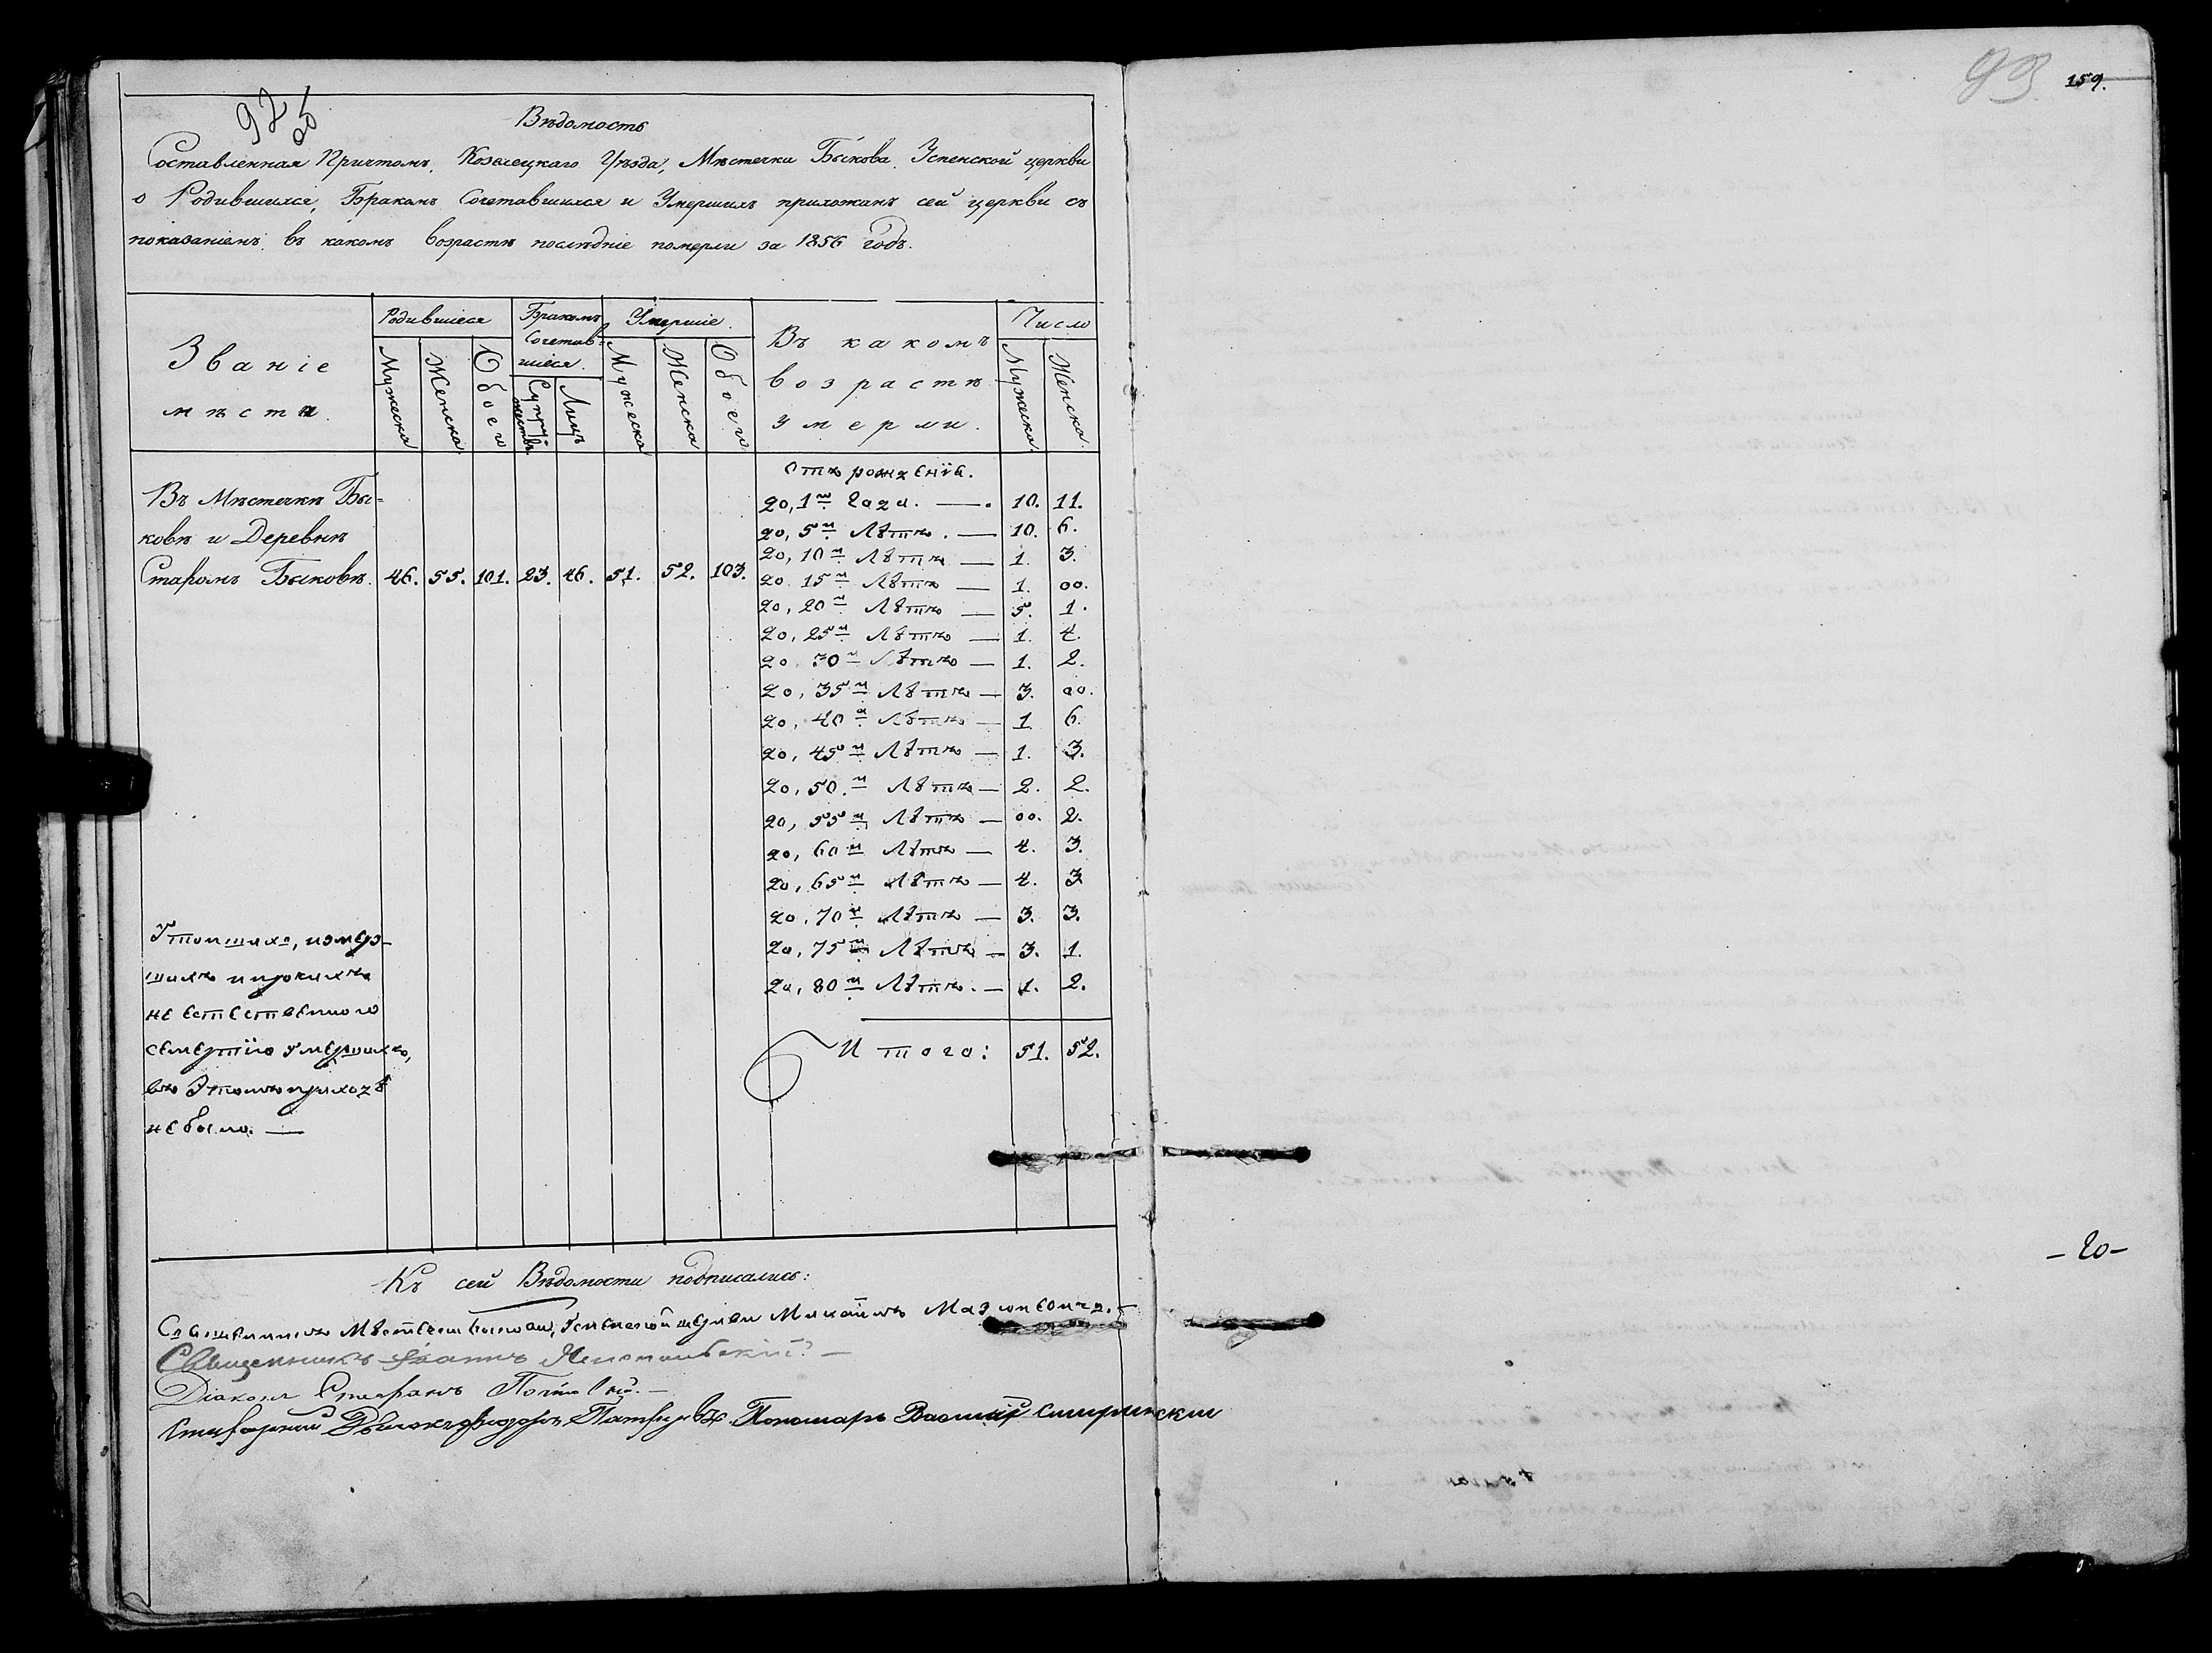 92
Вѣдомость
Составленная Причтомъ, Козелецкаго Уѣзда, Мѣстечка Быкова Успенской церкви
о Родившихся, Бракомъ Сочетавшихся и Умершихъ прихожанъ сей церкви съ
показаніемъ, въ какомъ возрастѣ послѣдніе померли за 1856 годъ.
Званіе мѣста.
Родившіеся
Мужеска
Женска
Обоего
Бракомъ Сочетав=
шіеся.
Супру=
жествъ
Лицъ
Умершіе.
Мужеска
Женска
Обоего
Въ какомъ
возрастѣ
умерли.
Число
Мужеска
Женска.
Въ Мѣстечкѣ Бы=
ковѣ и Деревнѣ
Старомъ Быковѣ. 46. 55. 101. 23. 46. 51. 52. 103.
Отъ рожденія.
до, 1го года. — 10. 11.
до, 5и Лѣтъ. — 10. 6.
до, 10и Лѣтъ — 1. 3.
до 15и Лѣтъ — 1. 00.
до, 20и Лѣтъ — 5. 1.
до, 25и Лѣтъ — 1. 4.
до, 30и Лѣтъ — 1. 2.
до, 35и Лѣтъ — 3. 00.
до, 40а Лѣтъ — 1 6.
до, 45и Лѣтъ — 1. 3.
до, 50.и Лѣтъ — 2. 2.
до, 55и Лѣтъ — 00. 2.
до, 60и Лѣтъ — 4. 3.
до, 65и Лѣтъ — 4. 3
до, 70и Лѣтъ — 3. 3.
до, 75и Лѣтъ — 3. 1.
до, 80и Лѣтъ. — 1. 2.
Итого: 51. 52.
Утопшихъ, измерз-
шихъ и прочихъ
неестественною
смертію умершихъ,
въ Этомъ приходѣ
не было. —
Къ сей Вѣдомости подписались:
Священникъ Успенской церкви Михаилъ
Священникъ Іоаннъ
Діаконъ Стефанъ
Пономарь Василій
93
159.
- 20 -